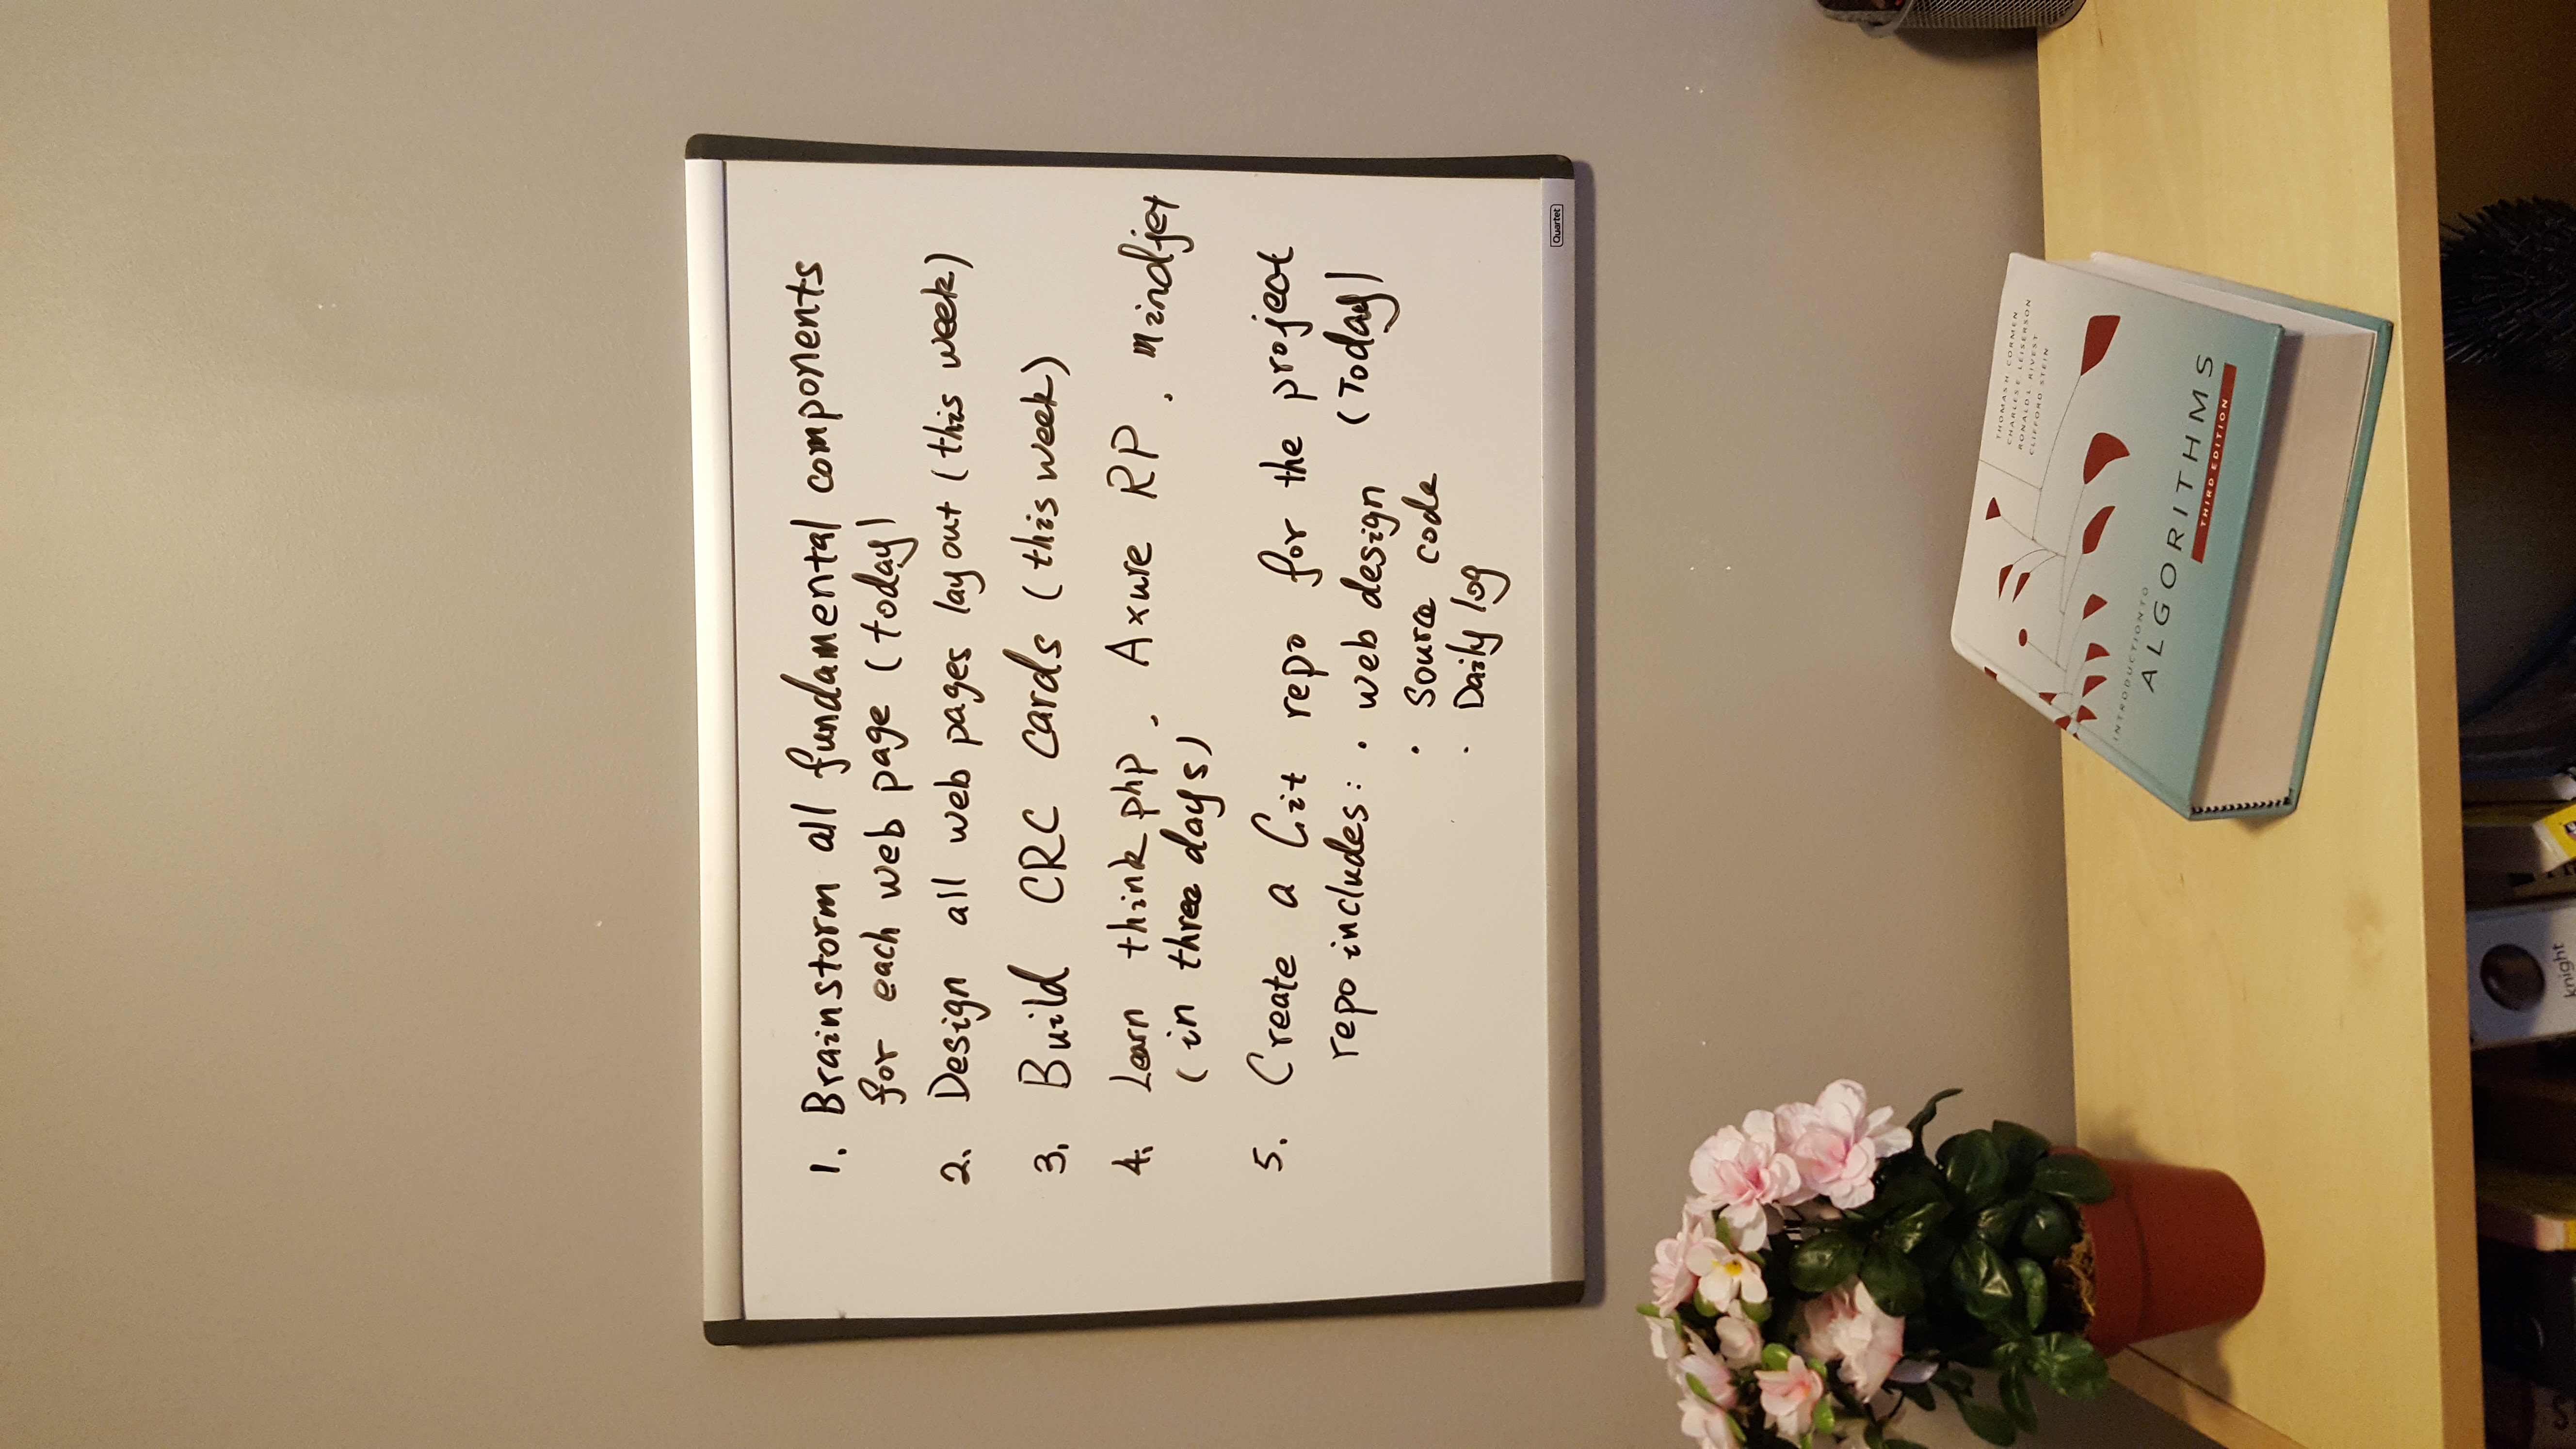 1. Brainstorm all fundamental components
for each web page (today)
2. Design all web pages layout (this week)
3. Build CRC cards (this week)
4. Learn think php, Axure RP, mindjet
(in three days)
5. Create a Git repo for the project
repo includes: • web design (Today)
• Source code
• Daily log
Quartet
THOMAS H. CORMEN
CHARLES E. LEISERSON
RONALD L. RIVEST
CLIFFORD STEIN
INTRODUCTION TO
ALGORITHMS
THIRD EDITION
knight